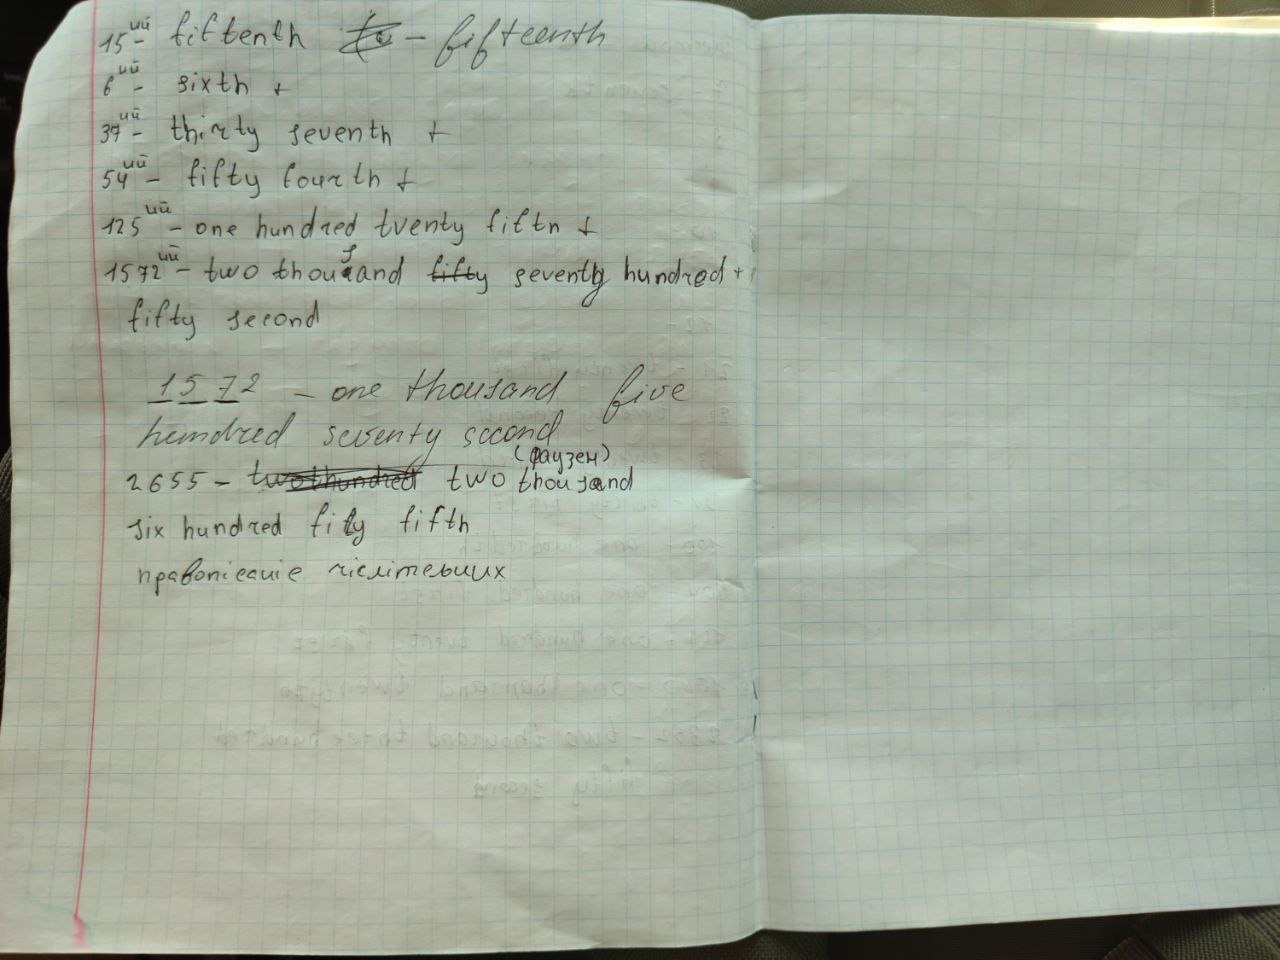 15ий - fiftenth - fifteenth
6ий - sixth +
37ий - thirty seventh +
54ий - fifty fourth +
125ий - one hundred tventy fiftn +
1572ий - two thousand fifty seventy hundred +
fifty second
1572 - one thousand five
hundred seventy second
(фаузен)
2655 - two thundred two thousand
six hundred fify fifth
правопісаніе чіслітельних